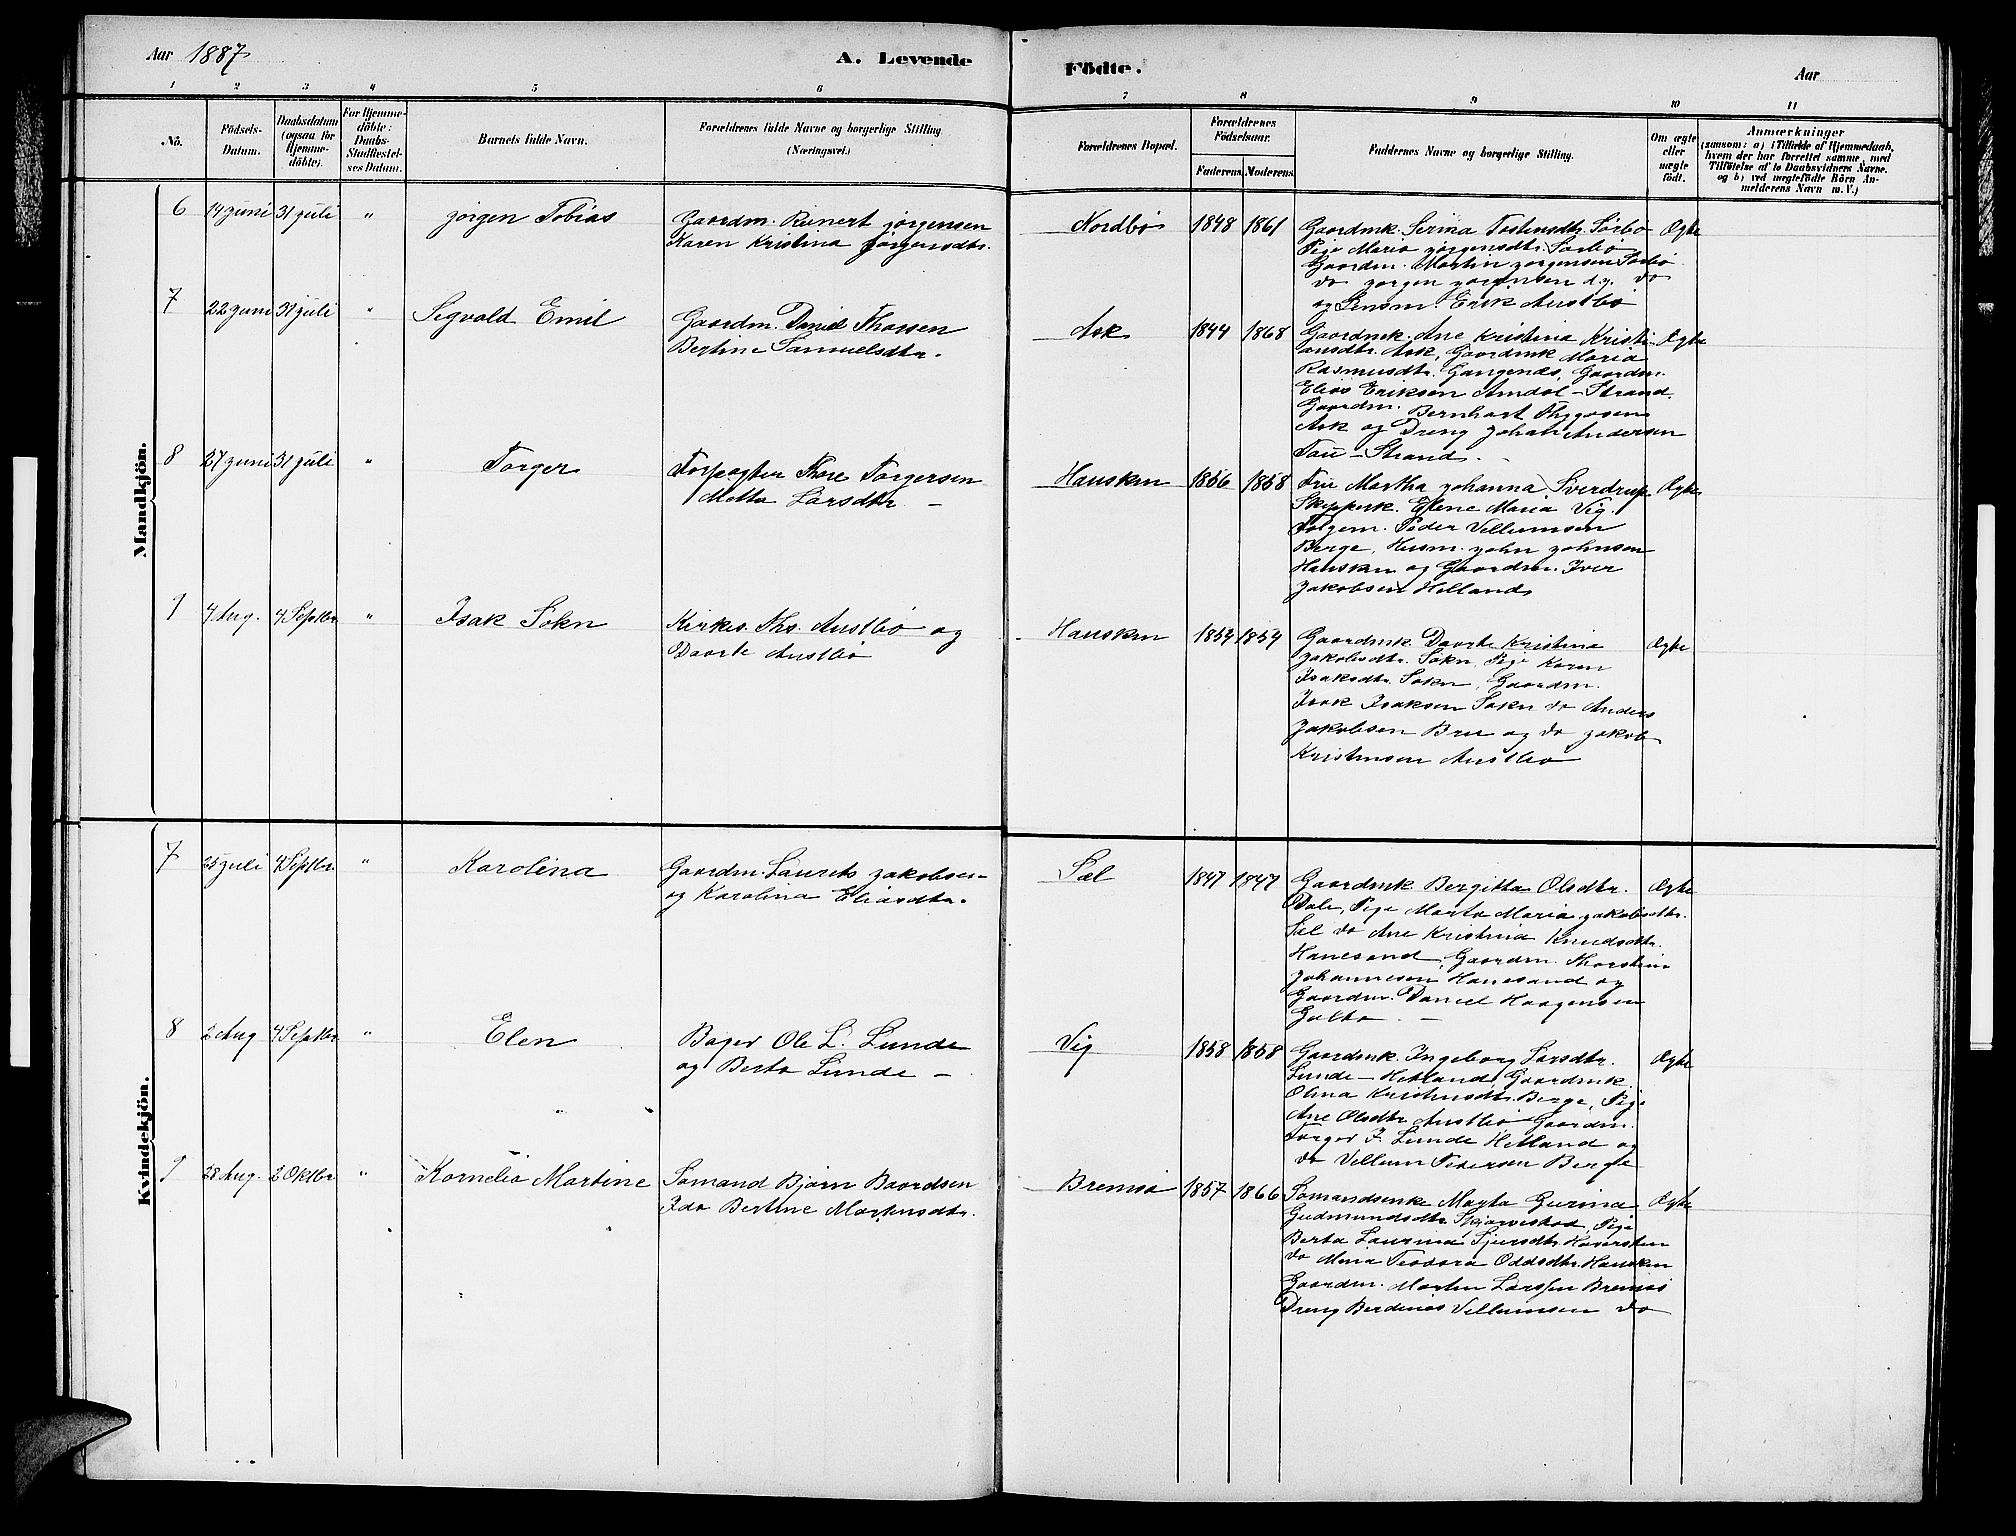 Aar 1887
A. Levende
Födte.
Aar
1 2 3 4 5 6 7 8 9 10 11
No.
Födsels-Datum.
Daabsdatum (ogsaa for Hjemme-döbte).
For Hjemme-döbte: Daabs-Stadfæstel-ses Datum.
Barnets fulde Navn.
Forældrenes fulde Navne og borgerlige Stilling
(Næringsvei.)
Forældrenes Bopæl.
Forældrenes Födselsaar.
Faderens Moderens
Faddernes Navne og borgerlige Stilling.
Om ægte eller uægte födt.
Anmærkninger
(saasom: a) i Tilfælde af Hjemmedaab,
hvem der har forrettet samme, med
Tilföielse af to Daabsvidners Navne.
og b) ved uægtefödte Börn An-
melderens Navn m. V.)
Mandkjön.
6 14 juni 31 juli " jörgen Tobias
Gaardm. Reinert jörgensen
Karen Kristina jörgensdtr.
Nordbö 1848 1861
Gaardmk. Serina Tostensdtr. Sörbö
Pige Maria jörgensdtr. Sörbö
Gaardm. Martin jörgensen Sörbö
do jörgen jörgensen d.y. do
og Lensm. Erik Austbö
Ægte
7 22 juni 31 juli " Sigvald Emil
Gaardm. Daniel Thossen
Bertine Samuelsdtr.
Ask 1844 1868
Gaardmk. Ane Kristina Kristi-
ansdtr. Ask, Gaardmk Maria
Rasmusdtr. Gangenæs, Gaardm.
Elias Eriksen Amdal - Strand.
Gaardm. Bernhart Thygesen
Ask og Dreng Johan Andersen
Tau - Strand.
Ægte
8 27 juni 31 juli " Torger
Forpagter Thore Torgersen
Metta Larsdtr. -
Hausken 1856 1858
Fru Martha Johanna Sverdrup
Skipperk. Elene Maria Vig.
Folgem. Peder Vellumsen
Berge, Husm. John Johnsen
Hausken og Gaardm. Iver
Jakobsen Helland
Ægte
9 4 Aug. 4 Septbr " Isak Sokn
Kirkes. Ths. Austbö og
Daarte Austbö
Hausken 1854 1854
Gaardmk. Daarte Kristina
Jakobsdtr. Sokn, Pige Karen
Isaksdtr. Sokn, Gaardm.
Isak Isaksen Sokn do Anders
Jakobsen Bru og do Jakob
Kristensen Austbö
Ægte
Kvindekjön.
7 25 juli 4 Septbr " Karolina
Gaardm. Laurits Jakobsen
og Karolina Eliasdtr.
Sæl 1847 1847
Gaardmk Bergitha Olsdtr.
Dale, Pige Marta Maria Jakobsdtr.
Sæl do Ane Kristina Knudsdtr.
Hanesand, Gaardm. Thorstein
Johannesen Hanesand og
Gaardm. Daniel Haagensen
Galta. -
Ægte
8 2 Aug 4 Septbr " Elen
Bager Ole L. Lunde
og Berta Lunde -
Vig 1858 1858
Gaardmk. Ingeborg Larsdtr.
Lunde - Hetland, Gaardmk.
Olina Kristensdtr. Berge, Pige
Ane Olsdtr. Austbö Gaardm.
Torger J. Lunde Hetland og
do Vellum Pedersen Berge
Ægte
9 28 Aug. 2 Oktbr " Kornelia Martine
Sömand Björn Baardsen
Ida Bertine Martensdtr.
Bremsö 1857 1866
Sömandsenke Magta Gurina
Gudmundsdtr. Skjørvestad, Pige
Berta Laurina Sjursdtr. Haversten
do Mina Teodora Oddsdtr. Hausken
Gaardm. Morten Larssen Bremsö
Dreng Berdinus Vellumsen do
Ægte